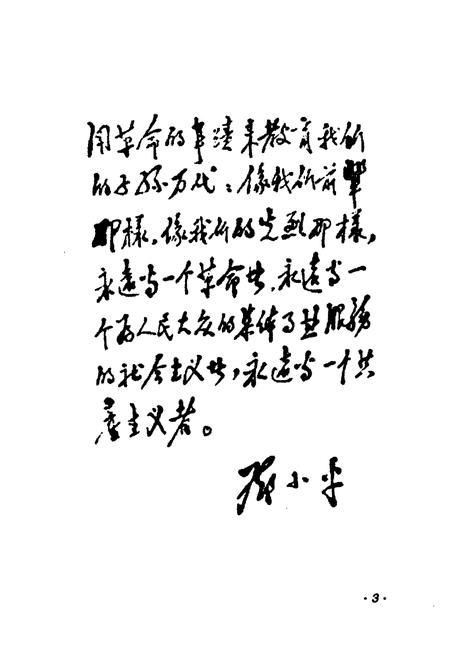 用革命的事蹟来教育我们
的子孙万代：像我们前辈
那樣，像我们的先烈那樣，
永遠当一个革命者，永遠当一
个为人民大众的集体事业服务
的社会主义者，永遠当一个共
產主义者。
邓小平
·3·